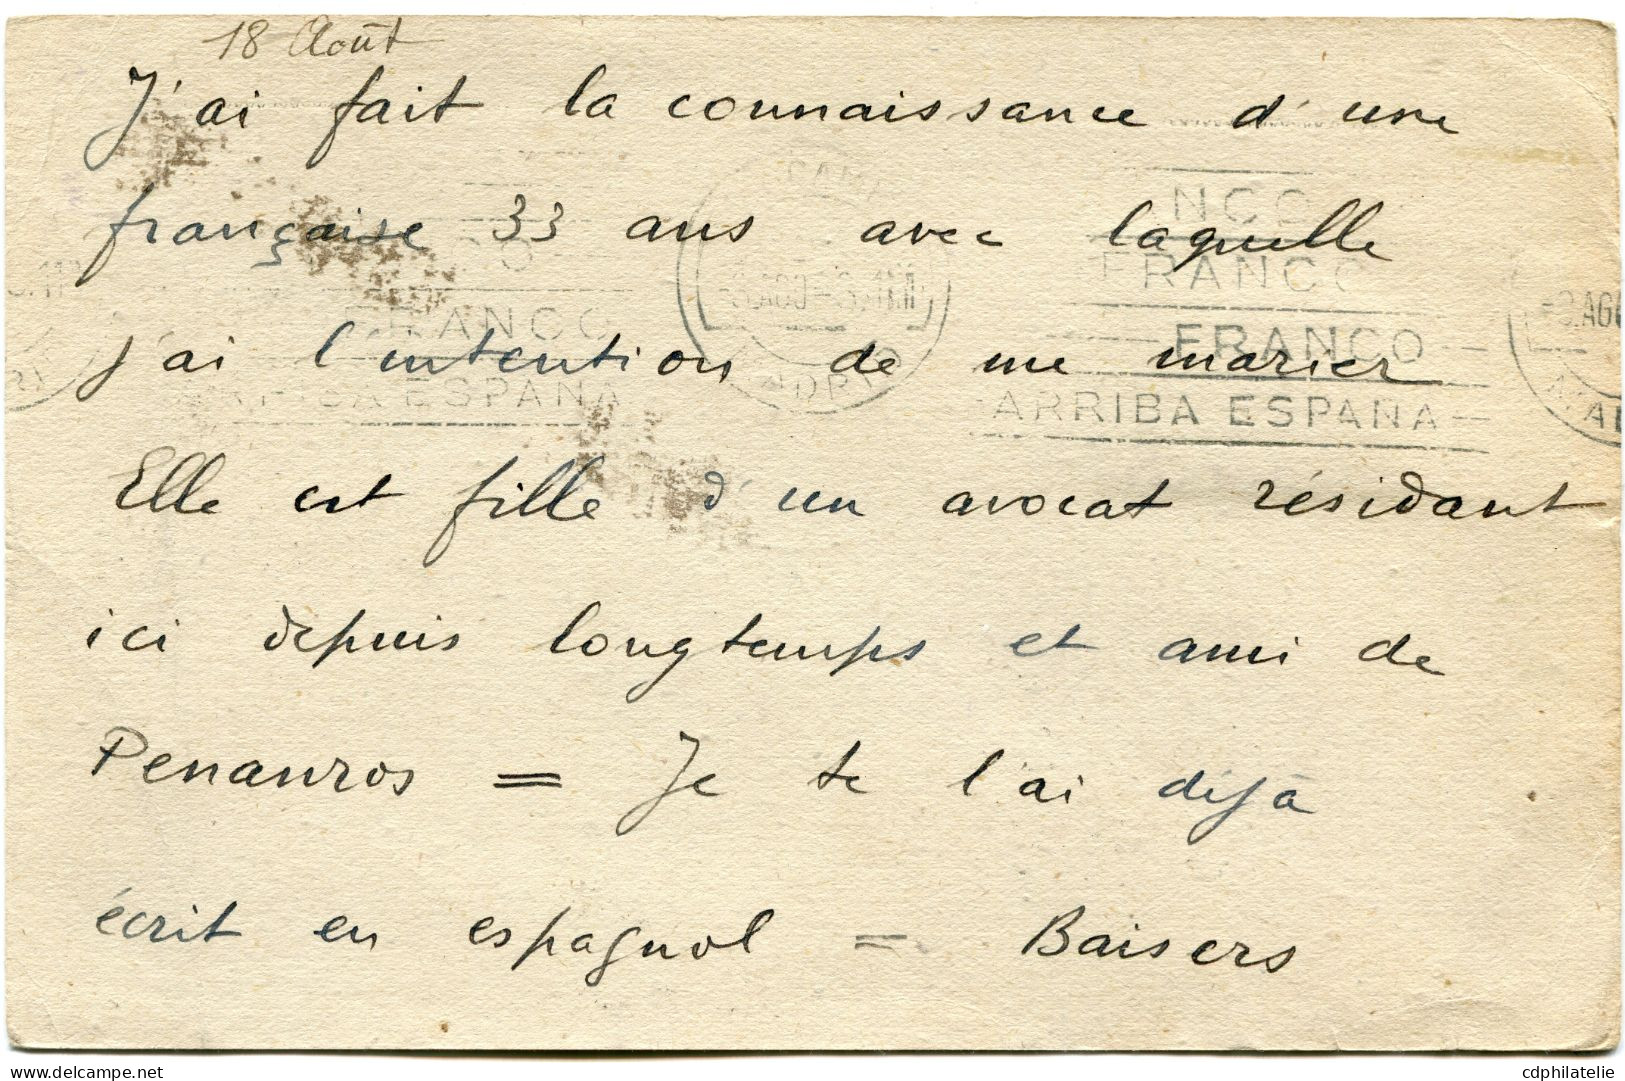 18 Août
J'ai fait la connaissance d'une
française 33 ans avec laquelle
j'ai l'intention de me marier
Elle est fille d'un avocat résidant
ici depuis longtemps et ami de
Penanros = Je te l'ai déjà
écrit en espagnol = Baisers
FRANCO
ESPAÑA
NCO
FRANCO
FRANCO
ARRIBA ESPAÑA
cdphilatelie